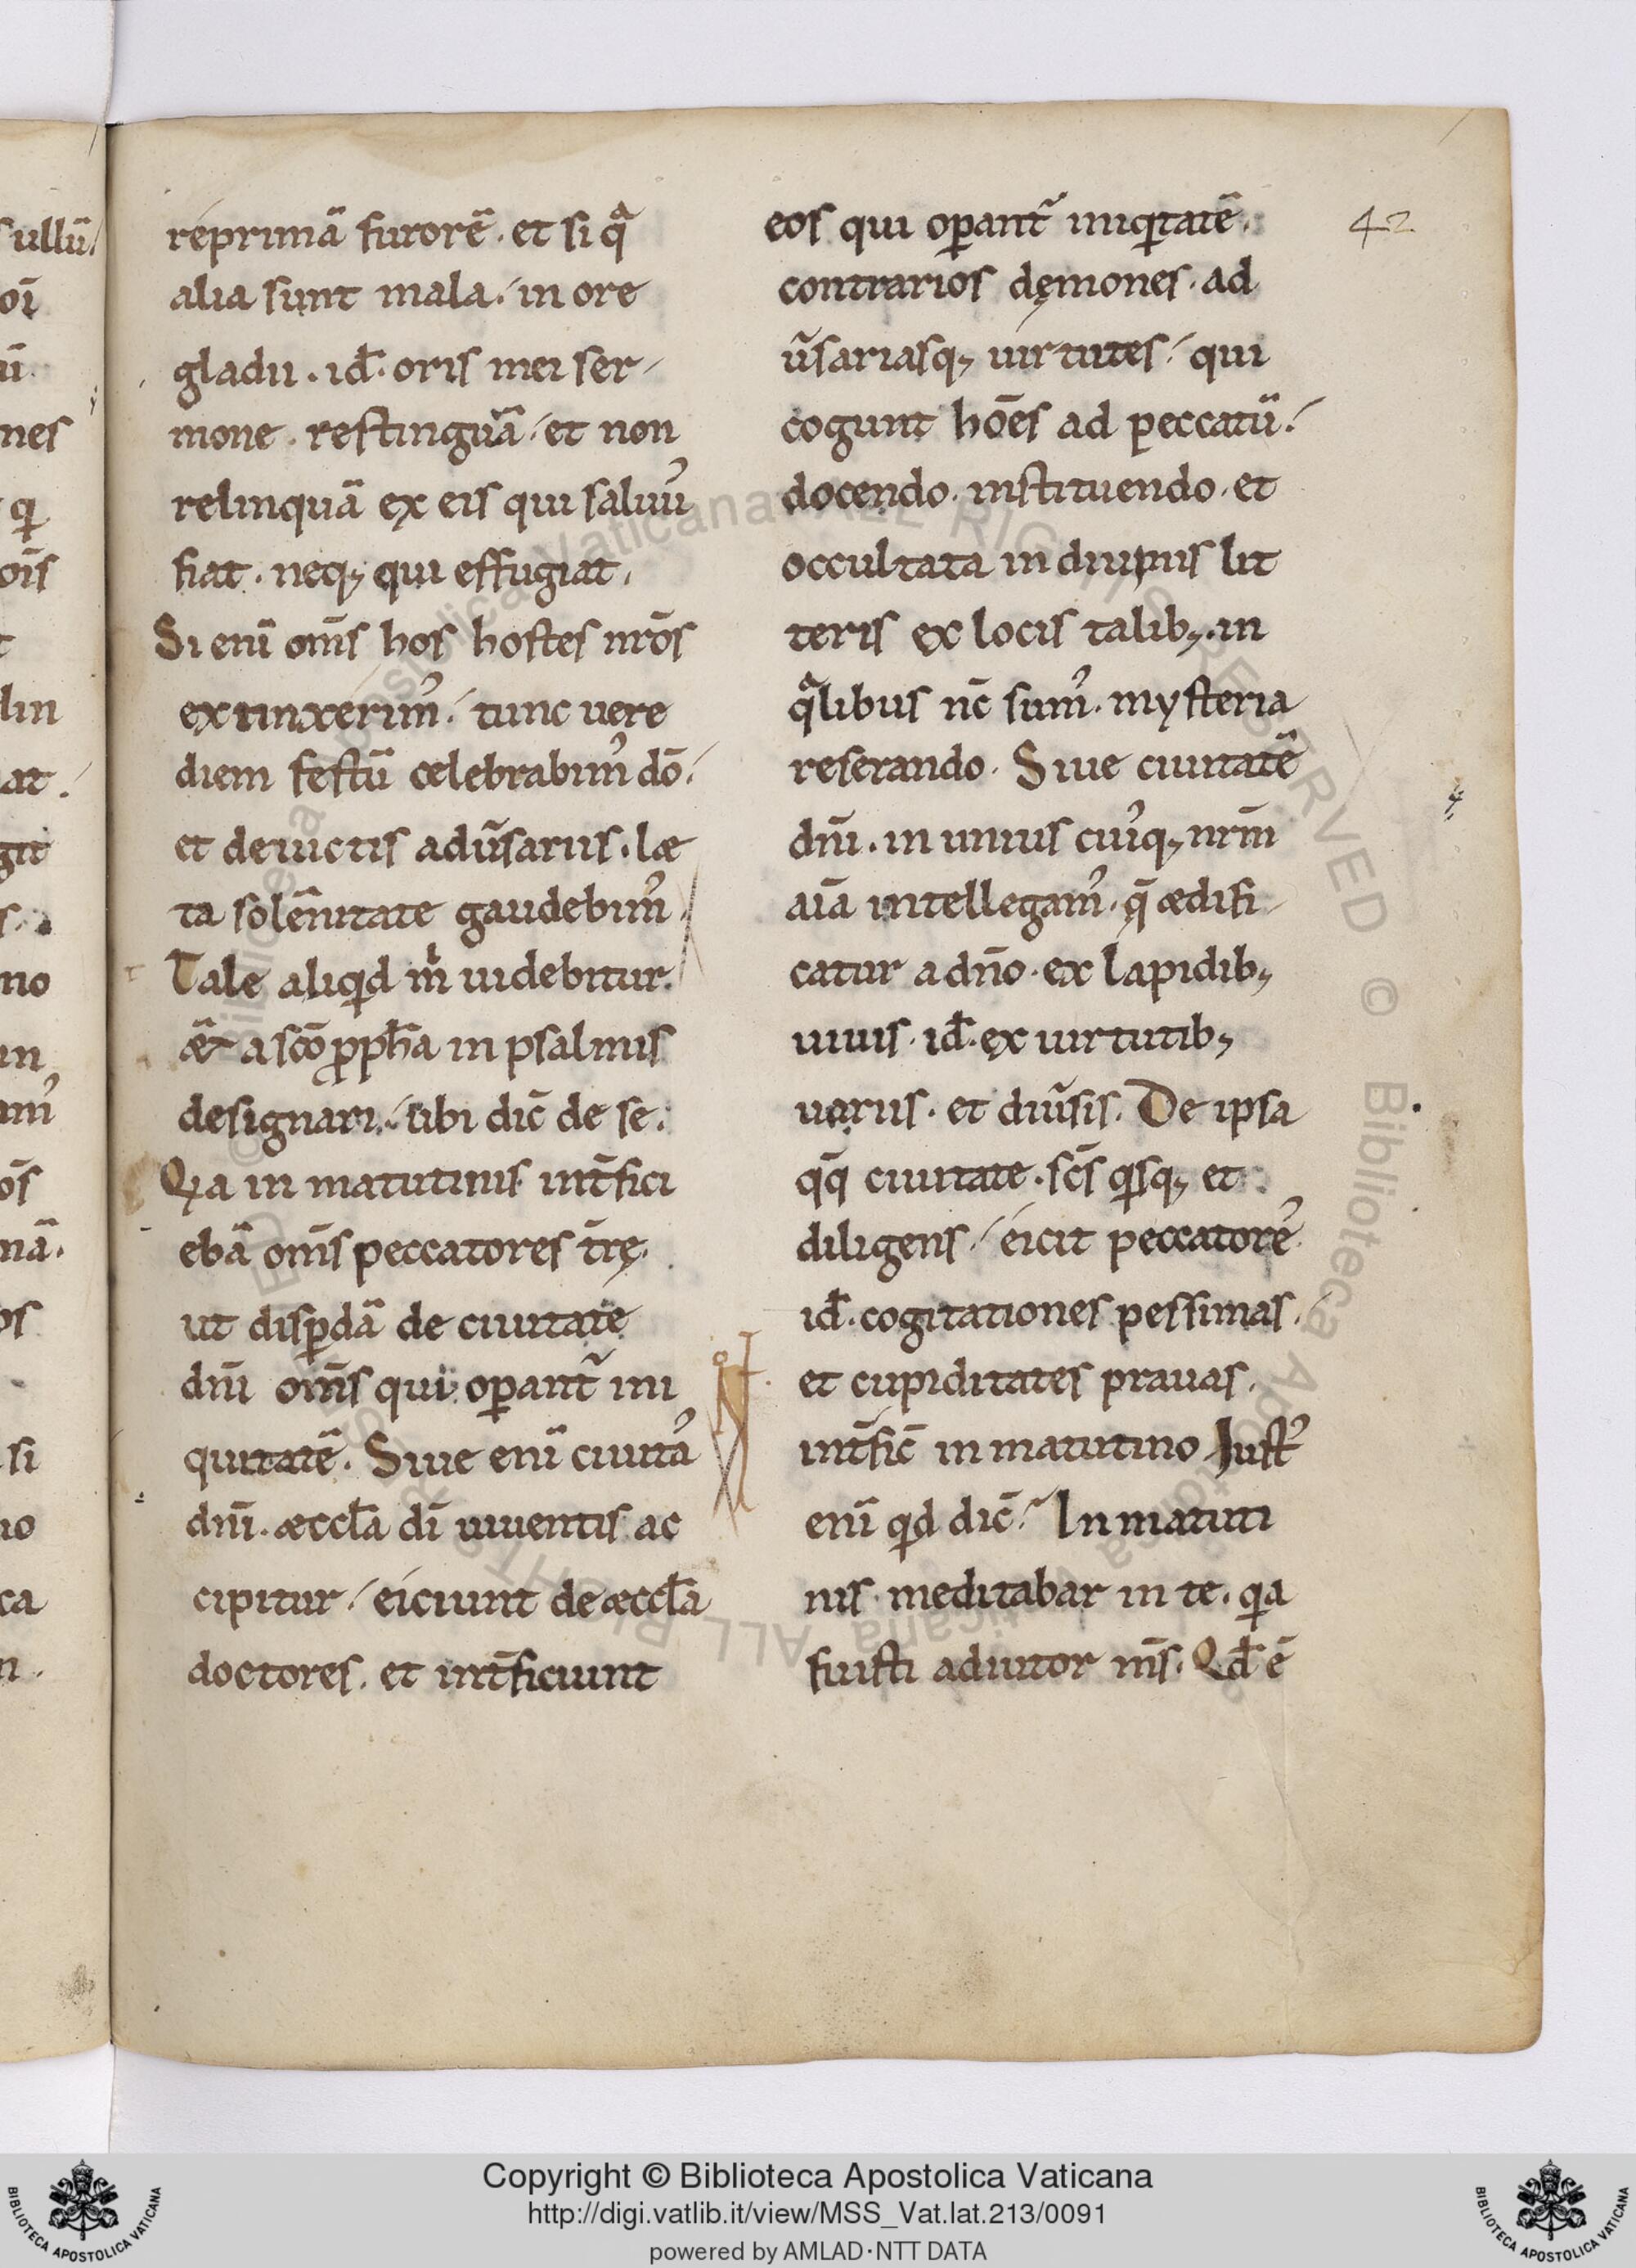 42
reprimā furorē. et si qᵃ
alia sunt mala. in ore
gladii. id̄. oris mei ser-
mone. restinguā. et non
relinquā ex eis qui saluuꝰ
fiat. neq; qui effugiat.
Si enī om̄s hos hostes nr̄os
extinxerimꝰ. tunc uere
diem festū celebrabimꝰ dō.
et deuictis adūsariis. læ
ta solēnitate gaudebimꝰ.
Tale aliqid m̄ uidebitur.
& a sc̄o ꝓph̄a in psalmis
designari. ubi dic̄ de se.
Qia in matutinis int̄fici
ebā om̄s peccatores t̄rę.
ut disꝑdā de ciuitate
dn̄i om̄s qui oꝑant̄ ini
quitatē. Siue enī ciuitaꝰ
dn̄i. æccl̄a dī uiuentis ac
cipitur. eiciunt de æccl̄a
doctores. et int̄ficiunt
eos qui oꝑant̄ iniqitatē.
contrarios dęmones. ad
ūsariasq; uirtutes. qui
cogunt hōes ad peccatū.
docendo. instituendo. et
occultata in diuinis lit
teris ex locis talib;. in
qᵃlibus nc̄ sumꝰ. mysteria
reserando. Siue ciuitatē
dn̄i. in unius cuiꝰq; nr̄m
aīa intellegamꝰ. q̄ ædifi
catur a dn̄o. ex lapidib;
uiuis. id̄. ex uirtutib;
uariis. et diūsis. De ipsa
q̄q̄ ciuitate. sc̄s qisq; et
diligens. eicit peccatorē.
id̄. cogitationes pessimas.
et cupiditates prauas.
int̄fic̄ in matutino. Iustꝰ
enī qid dic̄. In matuti
nis meditabar in te. qia
fuisti adiutor m̄s. Qd̄ ē
sullū.
nes
lin
at.
git
no
si
ca
Copyright © Biblioteca Apostolica Vaticana
http://digi.vatlib.it/view/MSS_Vat.lat.213/0091
powered by AMLAD·NTT DATA
BIBLIOTECA APOSTOLICA VATICANA
BIBLIOTECA APOSTOLICA VATICANA